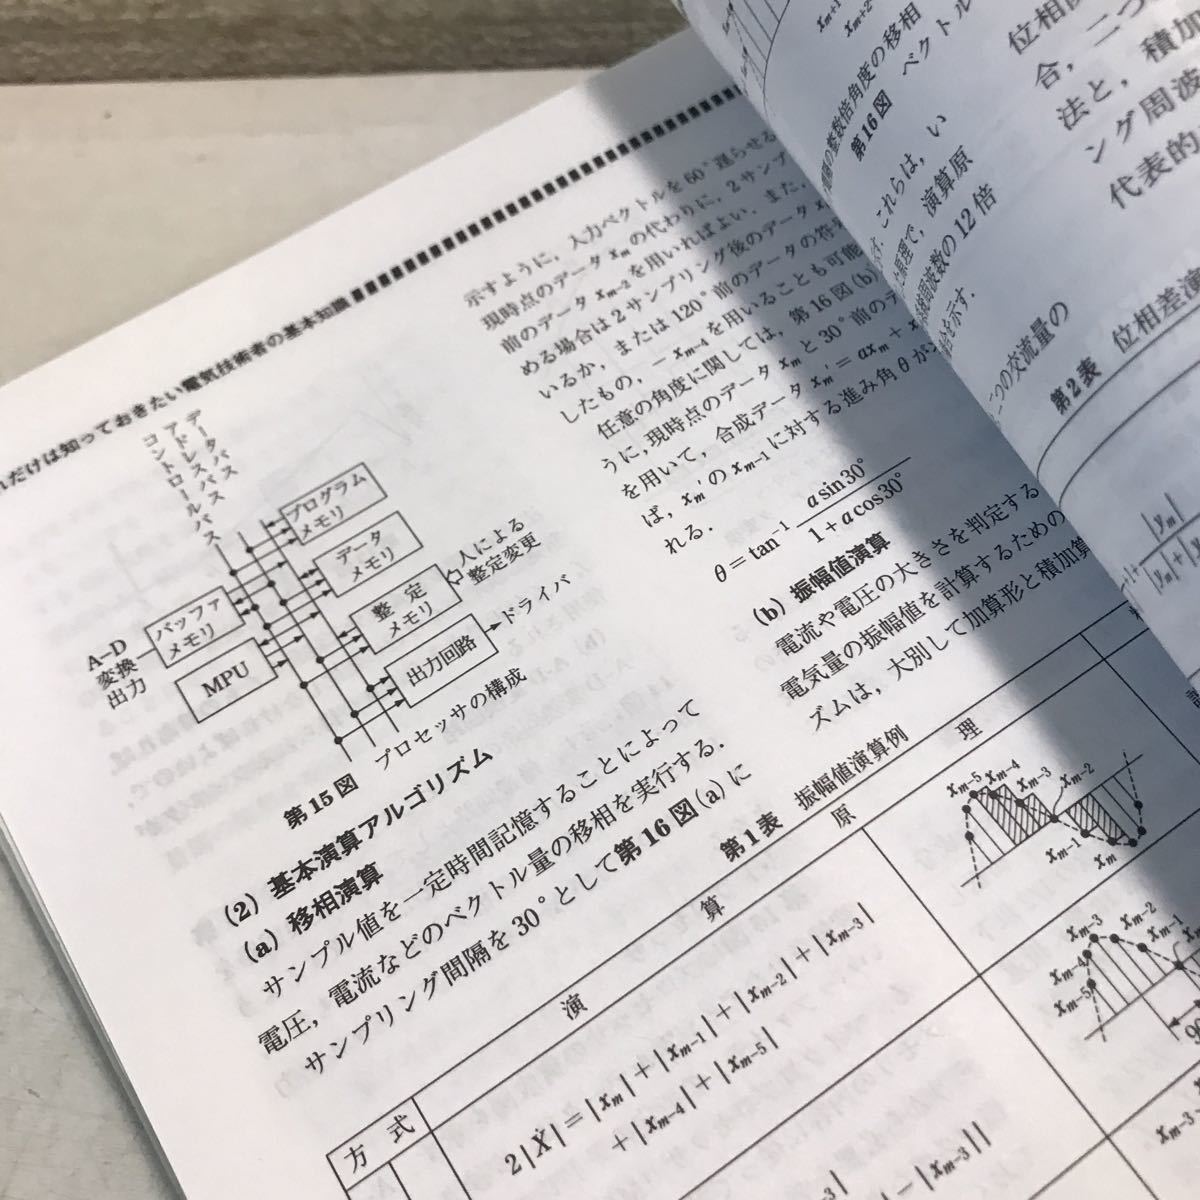 れだけは知っておきたい電気技術者の基本知識
データバス
アドレスバス
コントロールバス
プログラム
メモリ
データ
メモリ
整定
メモリ
人による
整定変更
出力回路
ドライバ
バッファ
メモリ
MPU
A–D
変換
出力
第15図 プロセッサの構成
(2) 基本演算アルゴリズム
(a) 移相演算
サンプル値を一定時間記憶することによって
電圧，電流などのベクトル量の移相を実行する．
サンプリング間隔を30°として第16図(a)に
示すように，入力ベクトルを60°遅らせる
現時点のデータxmの代わりに，2サンプ
前のデータxm−2を用いればよい．また，
める場合は2サンプリング後のデータx
いるか，または120°前のデータの符号
したもの，−xm−4を用いることも可能
任意の角度に関しては，第16図(b)
うに，現時点のデータxmと30°前のデ
を用いて，合成データxm′=axm+x
ば，xm′のxm−1に対する進み角θが
れる．
θ=tan−1 a sin30° / 1+a cos30°
(b) 振幅値演算
電流や電圧の大きさを判定する
電気量の振幅値を計算するための
ズムは，大別して加算形と積加算
第1表 振幅値演算例
方式
演算
原理
2|Ẋ|=|xm|+|xm−1|+|xm−2|+|xm−3|
+|xm−4|+|xm−5|
−|xm−3||
xm−5
xm−4
xm−3
xm−2
xm−1
xm
xm−3
xm−2
xm−1
xm−4
xm−5
xm−3
xm+1
xm+2
の整数倍角度の移相
第16図 ベクトル
す．これらは，い
原理で，演算原
周波数の12倍
を示す．
二つの交流量の
第2表 位相差演
位相
合，二つ
法と，積加
ング周波
代表的
|ym|
|ym|+|y